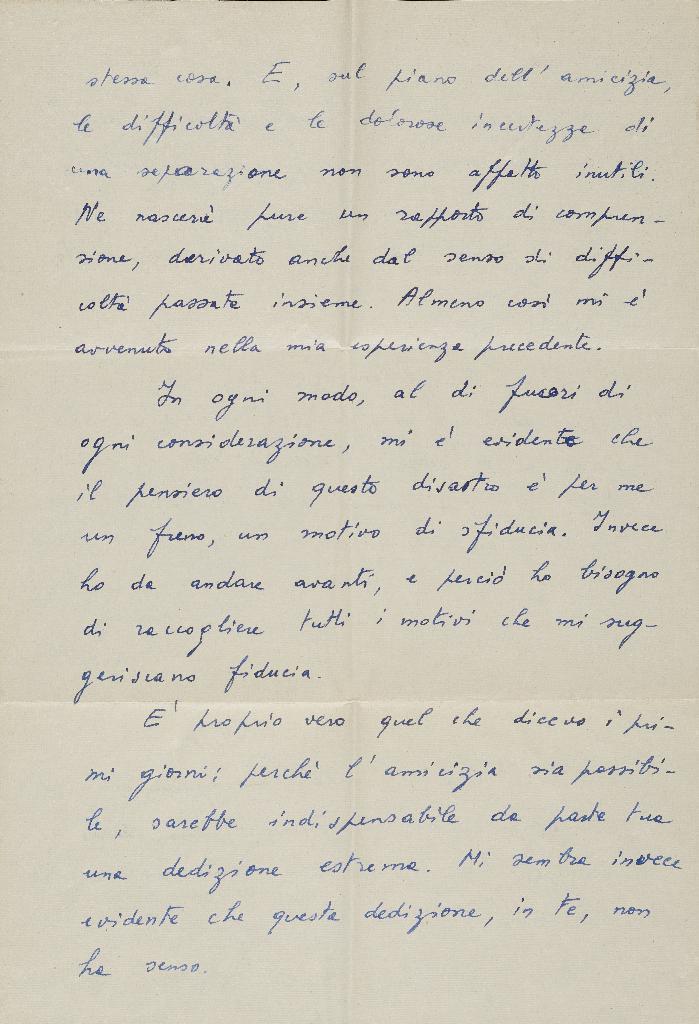 stessa cosa. E, sul piano dell'amicizia,
le difficoltà e le dolorose incertezze di
una separazione non sono affatto inutili.
Ne nascerà pure un rapporto di compren-
sione, derivato anche dal senso di diffi-
coltà passate insieme. Almeno così mi è
avvenuto nella mia esperienza precedente.
In ogni modo, al di fuori di
ogni considerazione, mi è evidente che
il pensiero di questo disastro è per me
un freno, un motivo di sfiducia. Invece
ho da andare avanti, e perciò ho bisogno
di raccogliere tutti i motivi che mi sug-
geriscano fiducia.
E' proprio vero quel che dicevo i pri-
mi giorni: perché l'amicizia sia possibi-
le, sarebbe indispensabile da parte tua
una dedizione estrema. Mi sembra invece
evidente che questa dedizione, in te, non
ha senso.